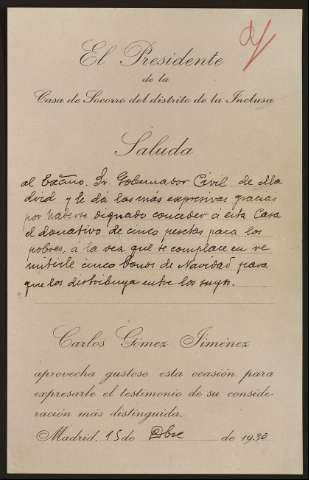 El Presidente
de la
Casa de Socorro del distrito de la Inclusa
Saluda
al Excmo. Sr. Gobernador Civil de Ma
drid y le da las más expresivas gracias
por haberse dignado conceder a esta Casa
el donativo de cinco pesetas para los
pobres, a la vez que se complace en re
mitirle cinco bonos de Navidad para
que los distribuya entre los suyos.
Carlos Gómez Jiménez
aprovecha gustoso esta ocasión para
expresarle el testimonio de su conside-
ración más distinguida.
Madrid, 15 de Dbre de 1930